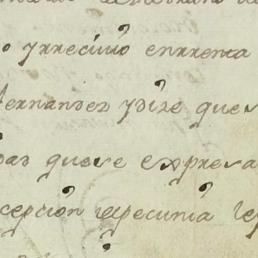 o yrrecivio enrrenta
Hernandez ydize que
das que se expresa
cepcion de pecunia